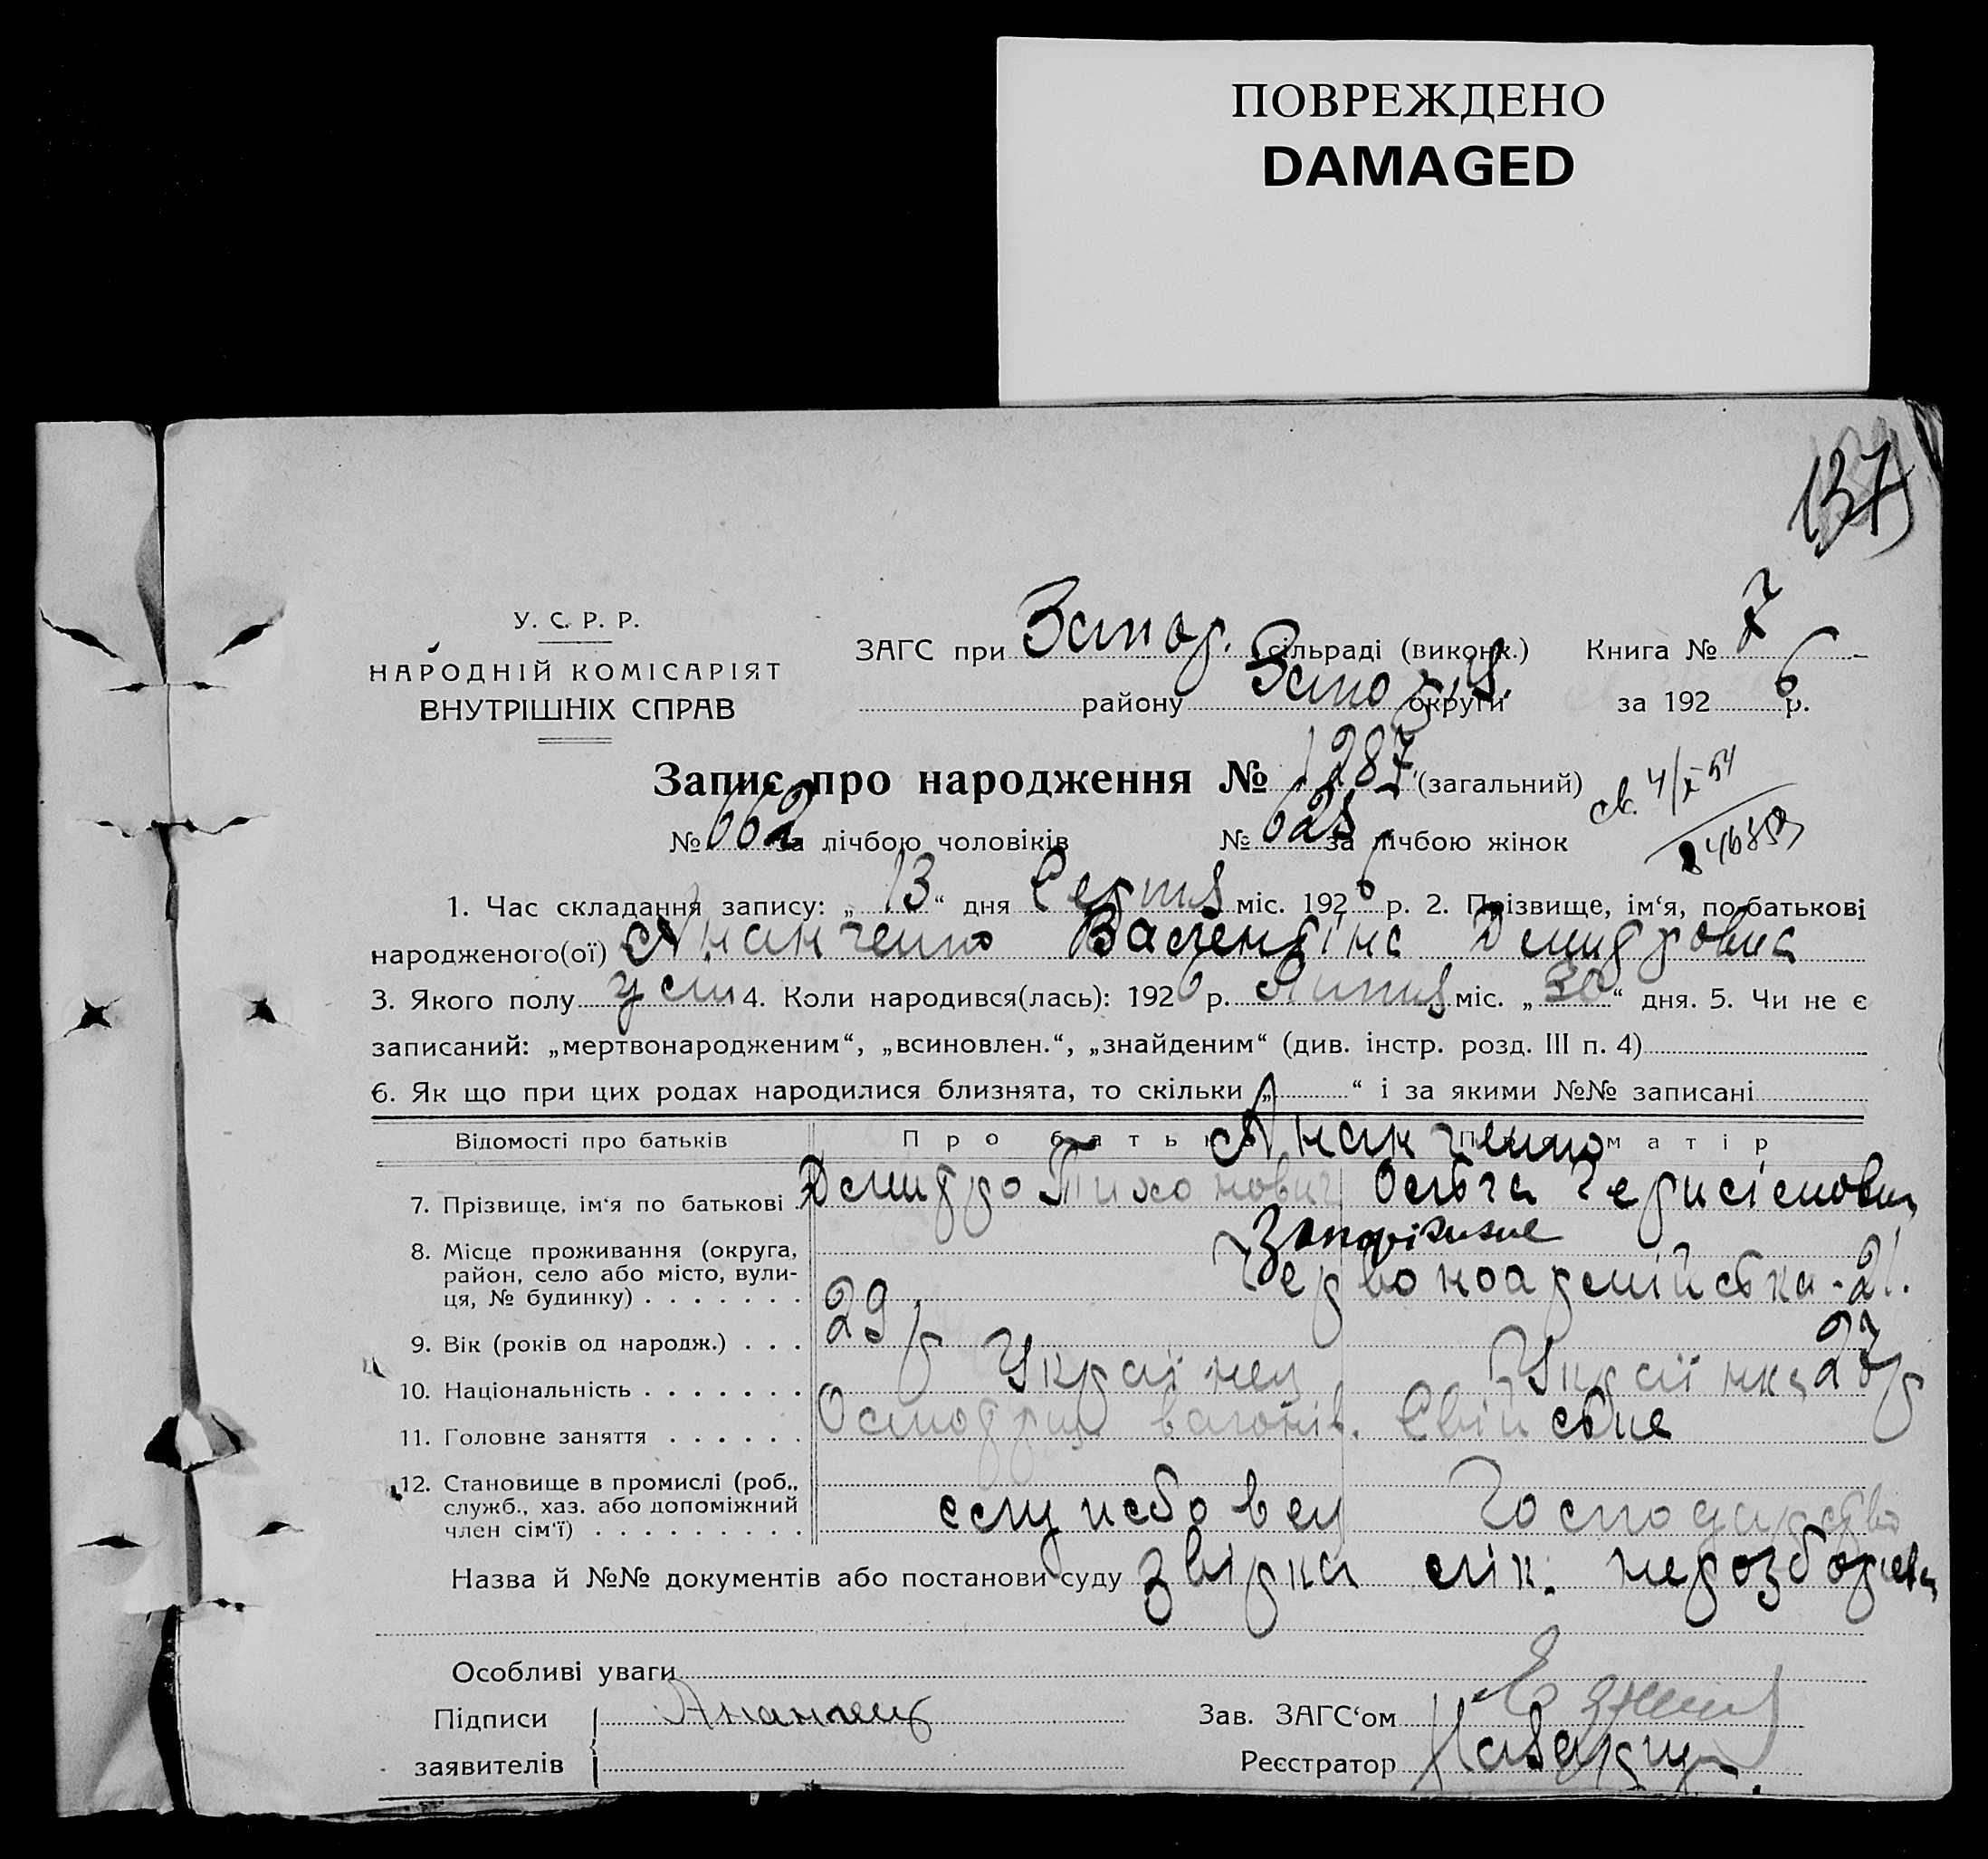 ПОВРЕЖДЕНО
DAMAGED
137
У. С. Р. Р.
НАРОДНІЙ КОМІСАРІЯТ
ВНУТРІШНІХ СПРАВ
ЗАГС при Запор. сільраді (виконк.) Книга № 7
району Запоріз. округи за 1926 р.
Запис про народження № 1287 (загальний)
св. 4/X-54
№ 662 за лічбою чоловіків № 625 за лічбою жінок
1. Час складання запису: „13“ дня Серпня міс. 1926 р. 2. Прізвище, ім‘я, по-батькові
народженого(ої) Ананченко Валентіна Дмитровна
3. Якого полу 4. Коли народився(лась): 1926 р. Липня міс. „30“ дня. 5. Чи не є
записаний: „мертвонародженим“, „всиновлен.“, „знайденим“ (див. інстр. розд. III п. 4)
6. Як що при цих родах народилися близнята, то скільки „ “ і за якими №№ записані
Відомості про батьків Про батька Про матір
Ананченко
7. Прізвище, ім‘я по батькові Дмитро Тихонович Ольга
8. Місце проживання (округа, район, село або місто, вулиця, № будинку) Запоріжжє
Червоноармійська - 21.
9. Вік (років од народж.) 29 р 27 р
10. Національність Українец Українка
11. Головне заняття Осмотрщ вагонів. Свійське
12. Становище в промислі (роб., служб., хаз. або допоміжний член сім‘ї) службовец Господарство
Назва й №№ документів або постанови суду
Особливі уваги
Підписи заявителів
Зав. ЗАГС‘ом
Реєстратор